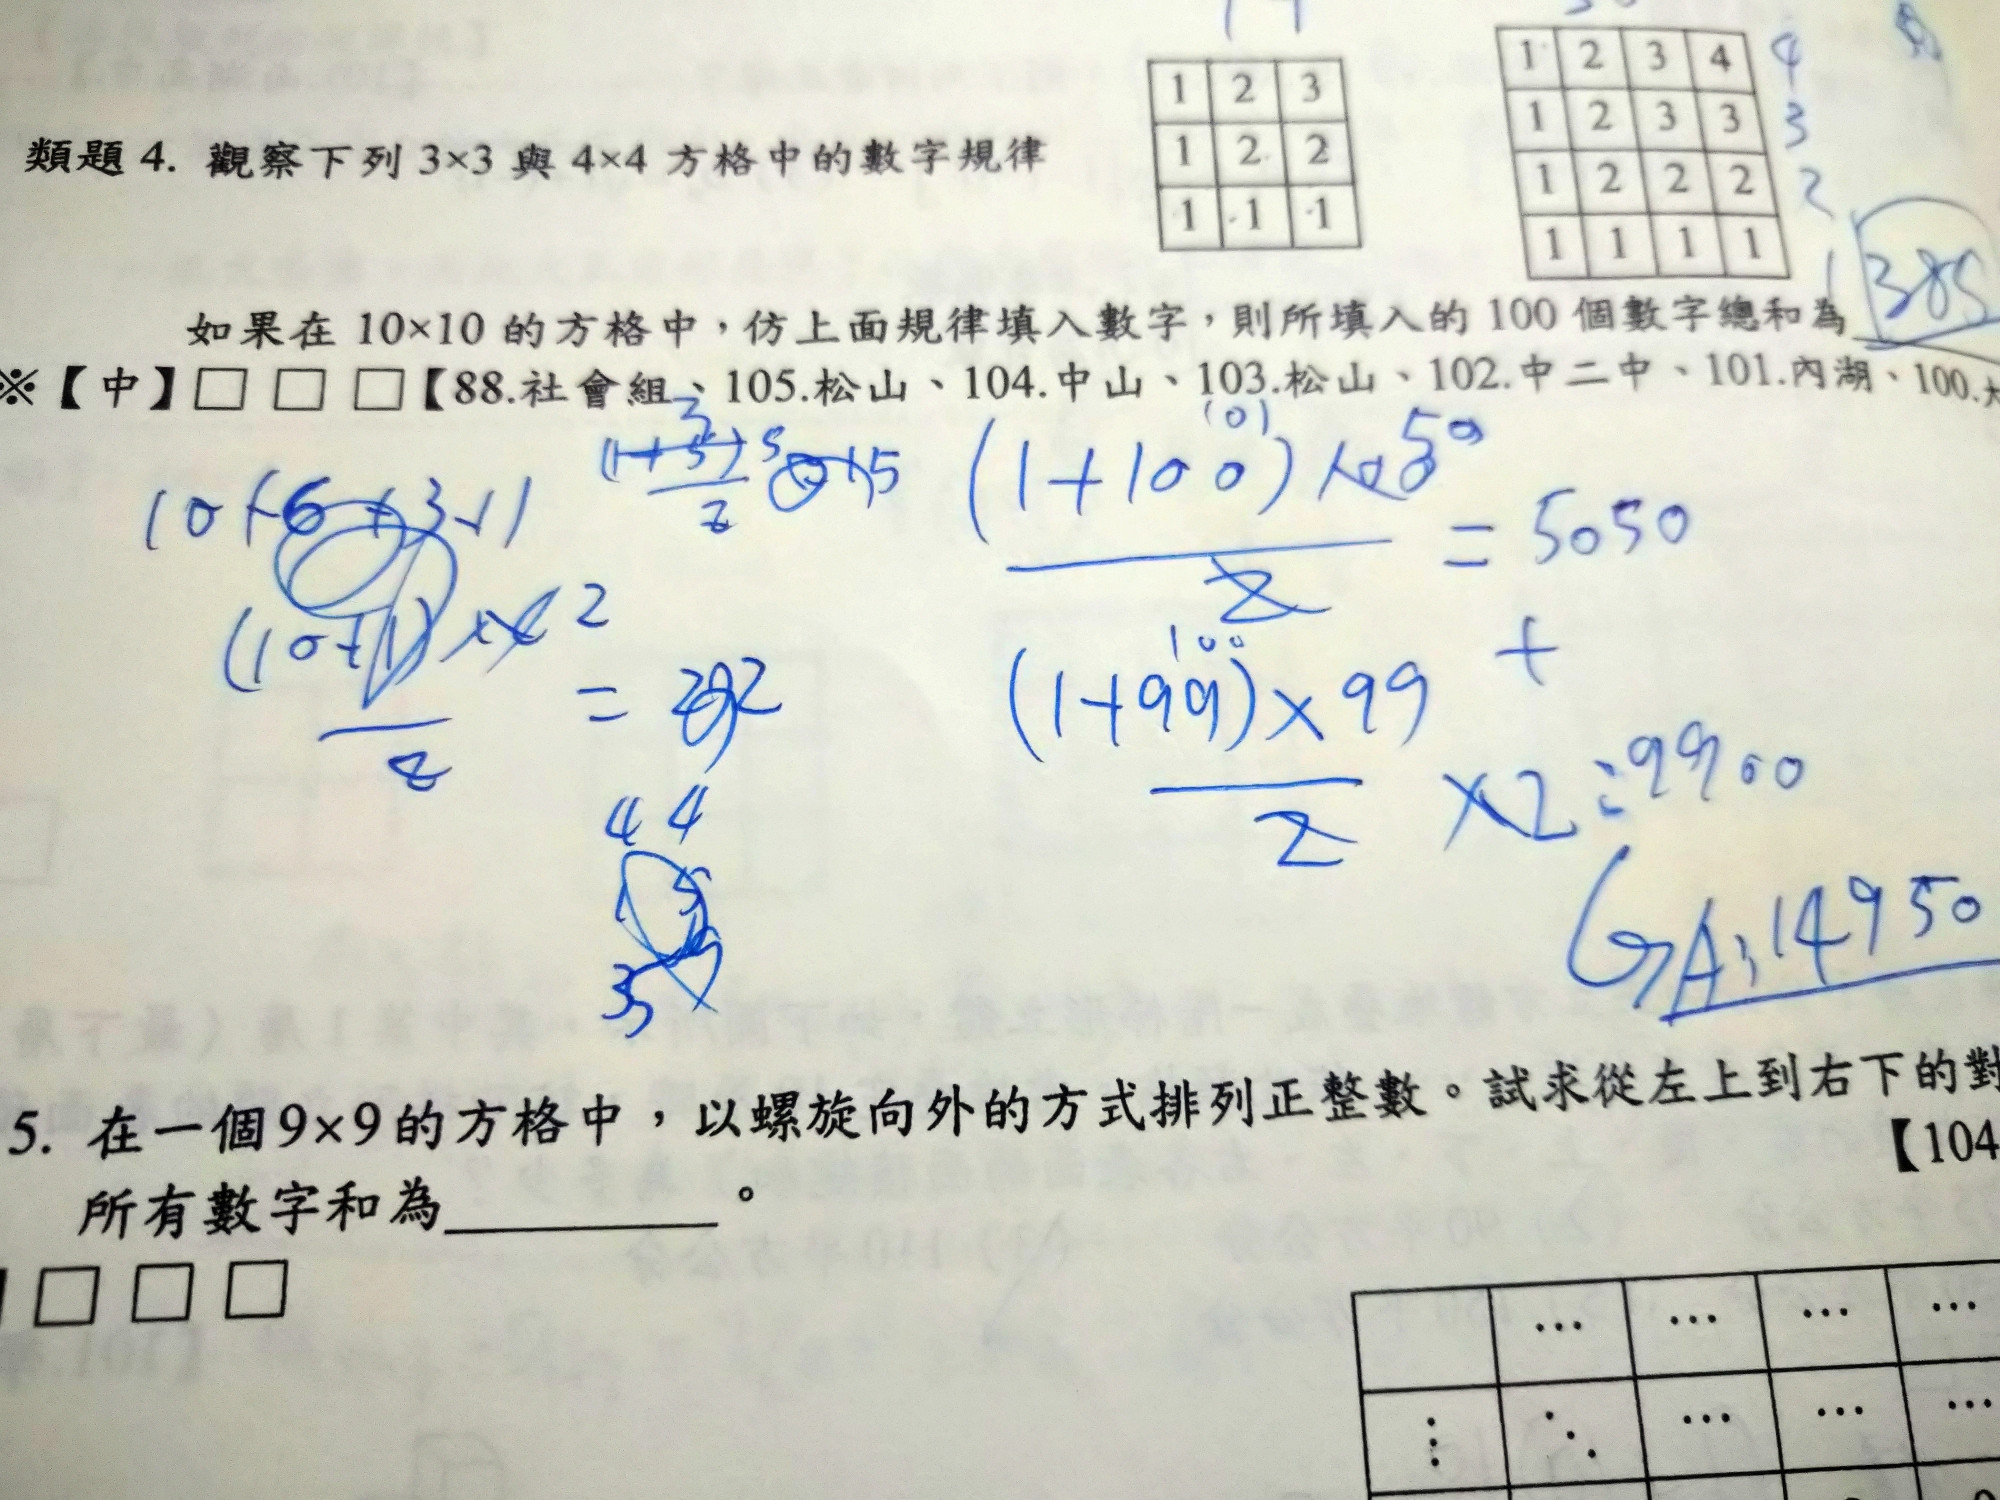 1 2 3
1 2 2
1 1 1
1 2 3 4
1 2 3 3
1 2 2 2
1 1 1 1
4
3
2
1
類題 4. 觀察下列 3×3 與 4×4 方格中的數字規律
如果在 10×10 的方格中，仿上面規律填入數字，則所填入的 100 個數字總和為
385
※【中】□ □ □【88.社會組、105.松山、104.中山、103.松山、102.中二中、101.內湖、100.
10+6+3+1
(1+100)×50
101
2
= 5050
+
(1+99)×99
100
2
×2=9900
A:14950
44
5. 在一個9×9的方格中，以螺旋向外的方式排列正整數。試求從左上到右下的對
【104
所有數字和為 。
□ □ □
… … … …
⋮ ⋱ … … …